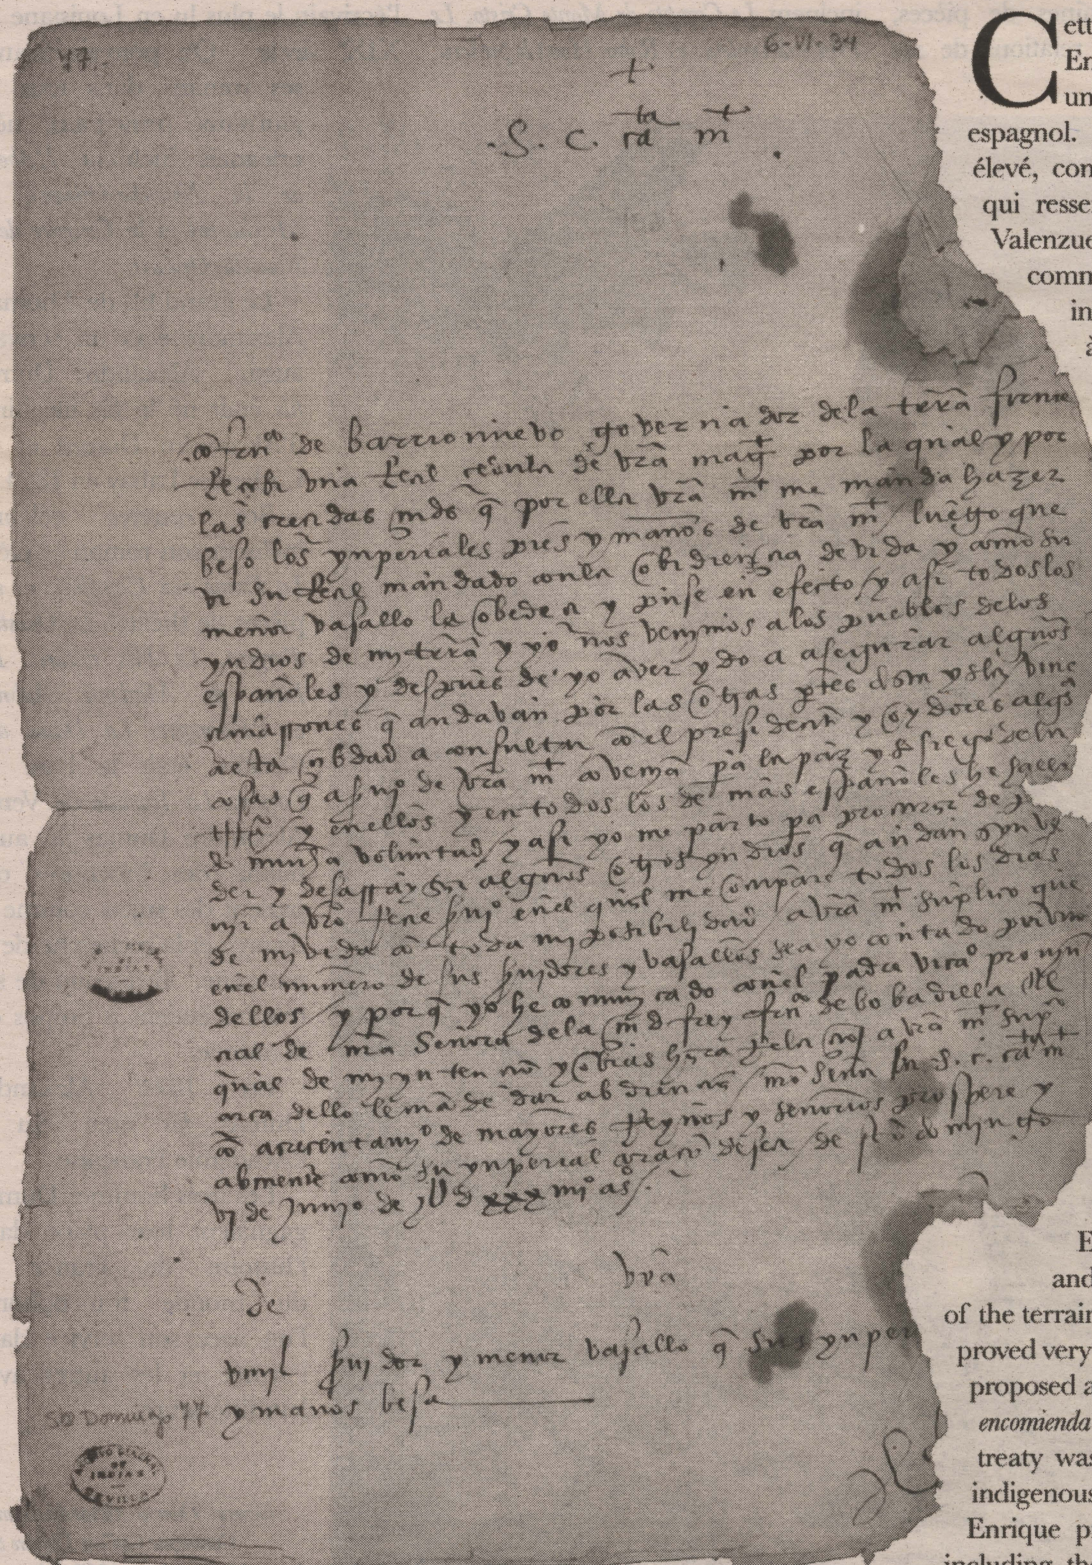 77.-
6-VI-34
+
. S. c. c̃ta mt .
Cett
En
un
espagnol.
élevé, con
qui resse
Valenzue
comm
in
à
frndo de barrionuevo governador dela trrã firme
Recebi una Real cedula de vrã magt por la qual y por
las crecidas mds q̃ por ella vrã mt me manda hazer
beso los ynperiales pies y manos de vrã mt / luego que
vi su Real mandado conla obidiencia devida y como su
menor vasallo la obedeci y puse en efecto / y asi todos los
yndios de my trrã y yo nos venymos alos pueblos delos
españoles y despues de yo aver ydo a asegurar algunos
cimarrones q̃ andavan por las otras ptes desta ysla vine
a esta cibdad a consultar con el presidente y oydores algs
cosas q̃ al servio de vrã mt convenya pa la paz y sosiego dela
trrã / y enellos y en todos los demas españoles he halla
do mucha voluntad / y asi yo me parto pa procurar de
der y desarraygar algunos otros yndios q̃ andan syn ve
nir a vrõ Real servio enel qual me ocupare todos los dias
de mi vida con toda mi posibilidad / a vrã mt suplico que
enel numero de sus servidores y vasallos sea yo contado por uno
dellos / y porq̃ yo he comunicado conel padre vicario provin
cial de nrã Señora dela md frey frco de bobadilla el
qual de my yntencion y obras hara Relacion a vrã mt supco
cerca dello le mande dar abdiencia / nrõ Señor su S. c. c̃ta mt
con acrecentamyo de mayores Reynos y señorios prospere y
abmente como su ynperial coraçon desea / de sto domingo
vj de Junyo de jUdxxxiiijo as /.
vrã
De
umil servidor y menor vasallo q̃ sus ynper
y manos besa
SD Domingo 77
ARCHIVO GENERAL
DE
INDIAS
SEVILLA
E
and
of the terrain
proved very
proposed a
encomienda
treaty was
indigenous
Enrique p
including th